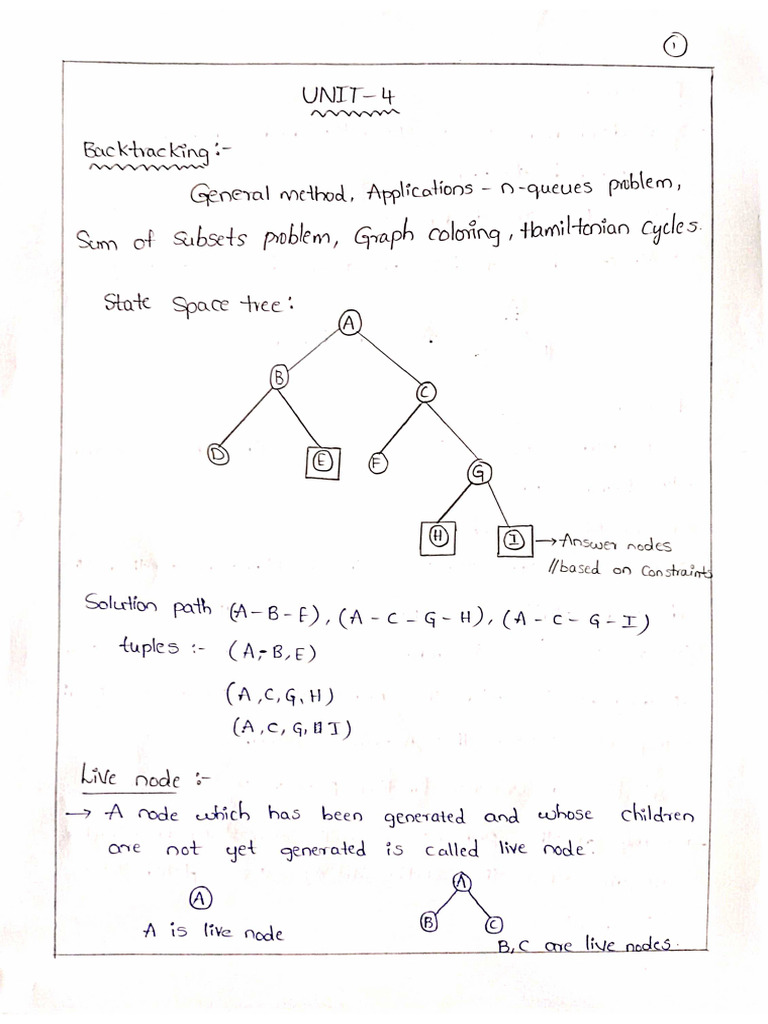 1
UNIT-4
Backtracking:-
General method, Applications - n-queues problem,
Sum of Subsets problem, Graph coloring, Hamiltonian Cycles.
State Space tree:
A
B
C
D
E
F
G
H
I
→Answer nodes
//based on Constraints
Solution path (A-B-E), (A-C-G-H), (A-C-G-I)
tuples :- (A,-B,E)
(A,C,G,H)
(A,C,G, I)
Live node :-
→ A node which has been generated and whose children
are not yet generated is called live node.
A
A is live node
A
B
C
B,C are live nodes.